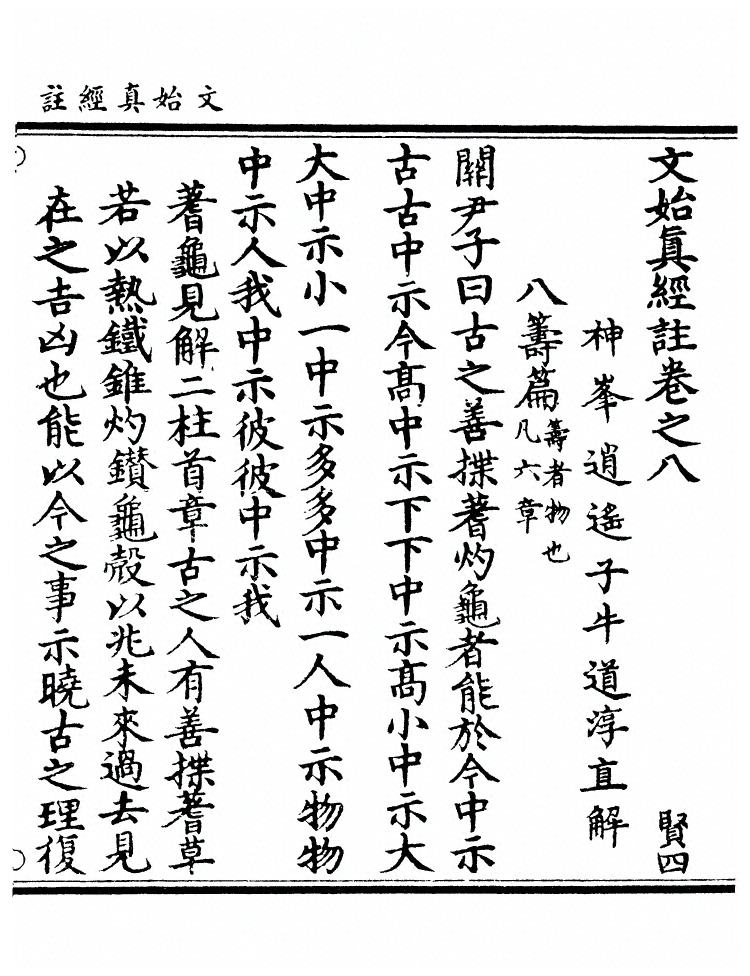 文始真經註
文始眞經註卷之八
賢四
神峯逍遙子牛道淳直解
八籌篇
籌者物也
凡六章
關尹子曰古之善揲蓍灼龜者能於今中示
古古中示今高中示下下中示高小中示大
大中示小一中示多多中示一人中示物物
中示人我中示彼彼中示我
蓍龜見解二柱首章古之人有善揲蓍草
若以熱鐵錐灼鑚龜殼以兆未來過去見
在之吉凶也能以今之事示曉古之理復